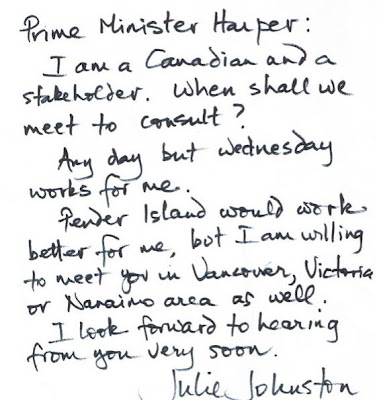 Prime Minister Harper:
I am a Canadian and a
stakeholder. When shall we
meet to consult?
Any day but Wednesday
works for me.
Pender Island would work
better for me, but I am willing
to meet you in Vancouver, Victoria
or Nanaimo area as well.
I look forward to hearing
from you very soon.
Julie Johnston